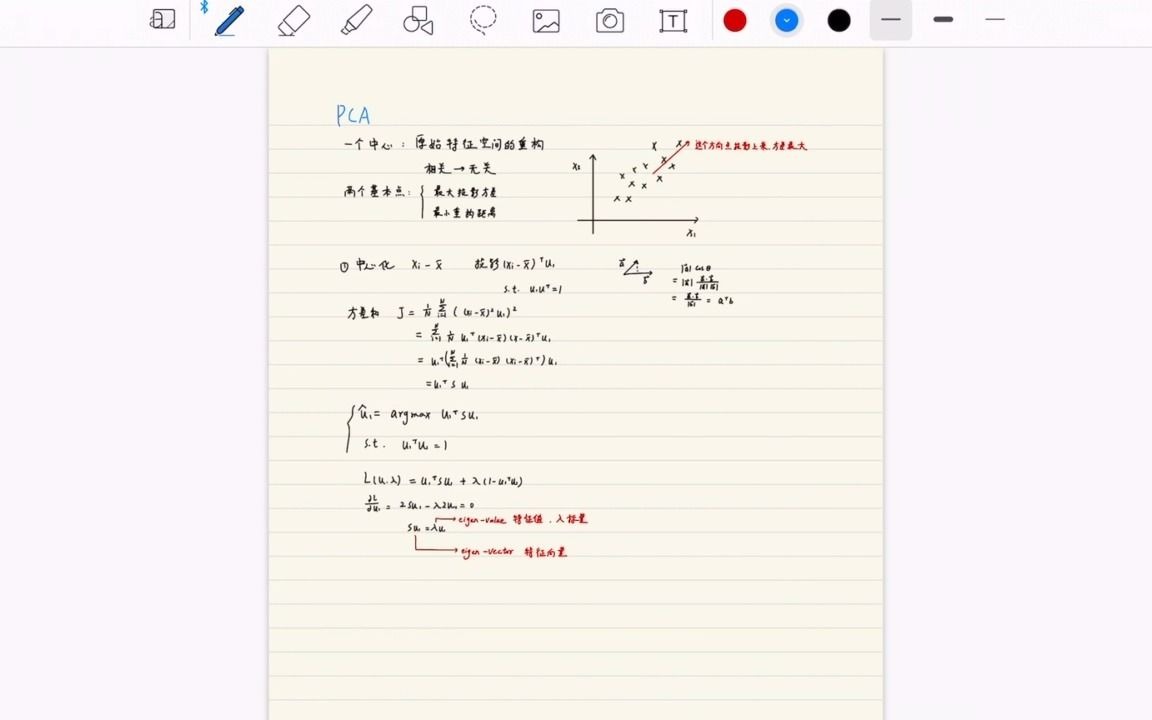 PCA
一个中心: 原始特征空间的重构
相关 → 无关
两个基本点: { 最大投影方差
最小重构距离
x₂
x₁
这个方向点投影上来,方差最大
① 中心化 xᵢ - x̄ 投影 (xᵢ - x̄)ᵀu₁
s.t. u₁u₁ᵀ = 1
|a| cosθ
= |a| a·b / |a||b|
= a·b / |b| = aᵀb
J = 1/N Σᵢ₌₁ᴺ ( (xᵢ - x̄)ᵀ u₁ )²
= Σᵢ₌₁ᴺ 1/N u₁ᵀ (xᵢ - x̄) (x - x̄)ᵀ u₁
= u₁ᵀ ( Σᵢ₌₁ᴺ 1/N (xᵢ - x̄) (xᵢ - x̄)ᵀ ) u₁
= u₁ᵀ s u₁
{ û₁ = argmax u₁ᵀ s u₁
s.t. u₁ᵀu₁ = 1
L(u,λ) = u₁ᵀsu₁ + λ(1 - u₁ᵀu₁)
∂L/∂u₁ = 2su₁ - λ2u₁ = 0
eigen-value 特征值, λ标量
su₁ = λu₁
eigen-vector 特征向量